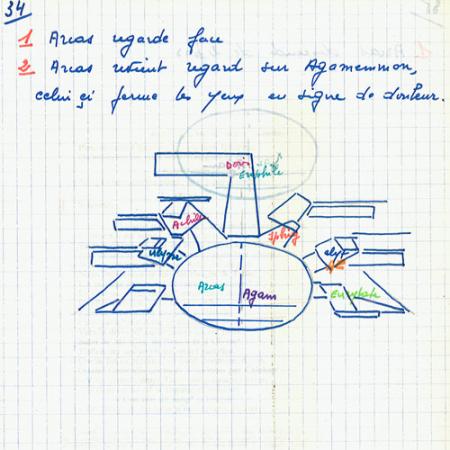 34
1 Arcas regarde face
2 Arcas retient regard sur Agamemnon,
celui çi ferme les yeux en signe de douleur.
Doris
Eriphile
Achille
Iphig
Ulysse
clyt
Arcas
Agam
Eurybate